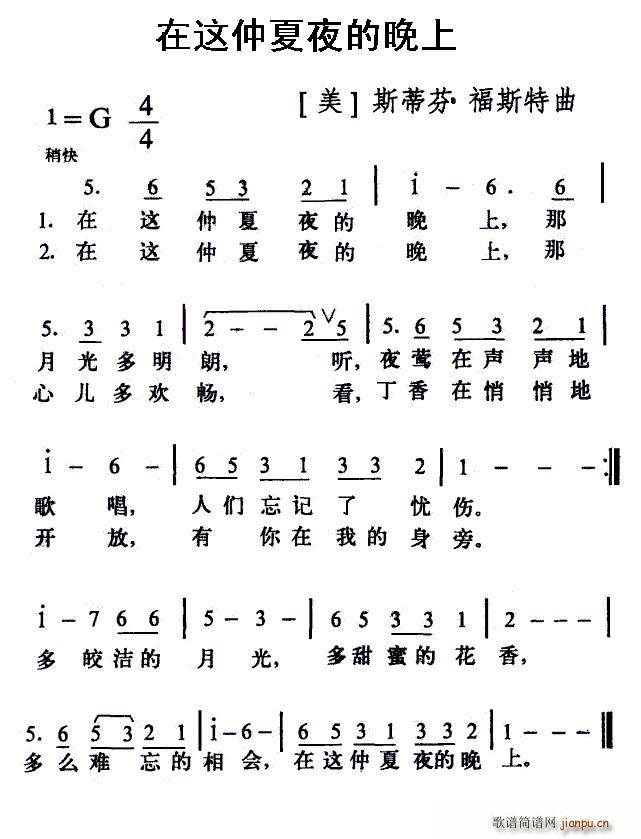 在这仲夏夜的晚上
1=G 4/4
[美]斯蒂芬·福斯特曲
稍快
5. 6 5 3 2 1 | i - 6. 6 |
1. 在 这 仲 夏 夜 的 晚 上, 那
2. 在 这 仲 夏 夜 的 晚 上, 那
5. 3 3 1 | 2 - - 2 ∨ 5 | 5. 6 5 3 2 1 |
月 光 多 明 朗, 听, 夜 莺 在 声 声 地
心 儿 多 欢 畅, 看, 丁 香 在 悄 悄 地
i - 6 - | 6 5 3 1 3 3 2 | 1 - - - :‖
歌 唱, 人 们 忘 记 了 忧 伤。
开 放, 有 你 在 我 的 身 旁。
i - 7 6 6 | 5 - 3 - | 6 5 3 3 1 | 2 - - - |
多 皎 洁 的 月 光, 多 甜 蜜 的 花 香,
5. 6 5 3 2 1 | i - 6 - | 6 5 3 1 3 3 2 | 1 - - - ‖
多 么 难 忘 的 相 会, 在 这 仲 夏 夜 的 晚 上。
歌谱简谱网
jianpu.cn